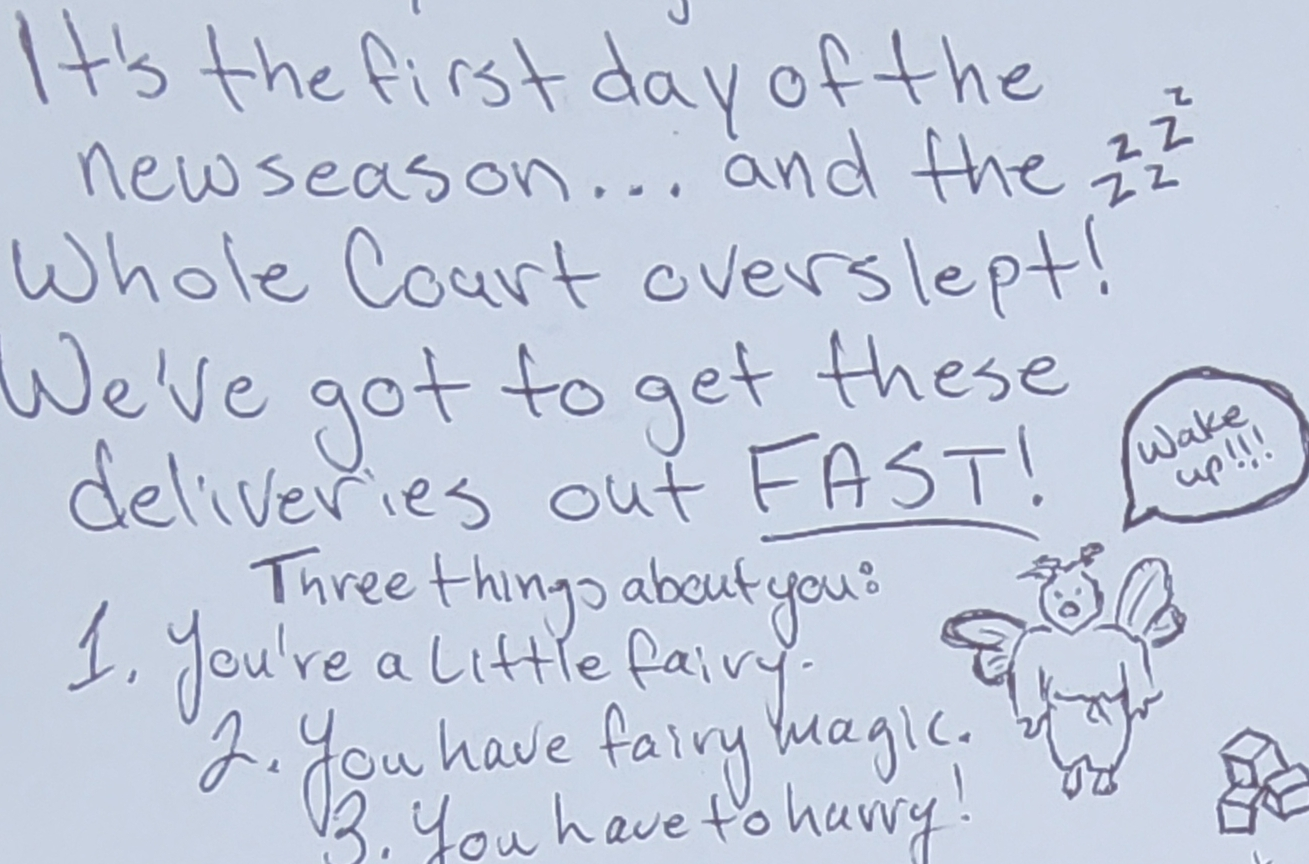 It's the first day of the
new season... and the zz zz z
Whole Court overslept!
We've got to get these
deliveries out FAST!
Wake
up!!!
Three things about you:
1. You're a little fairy.
2. You have fairy magic.
3. You have to hurry!